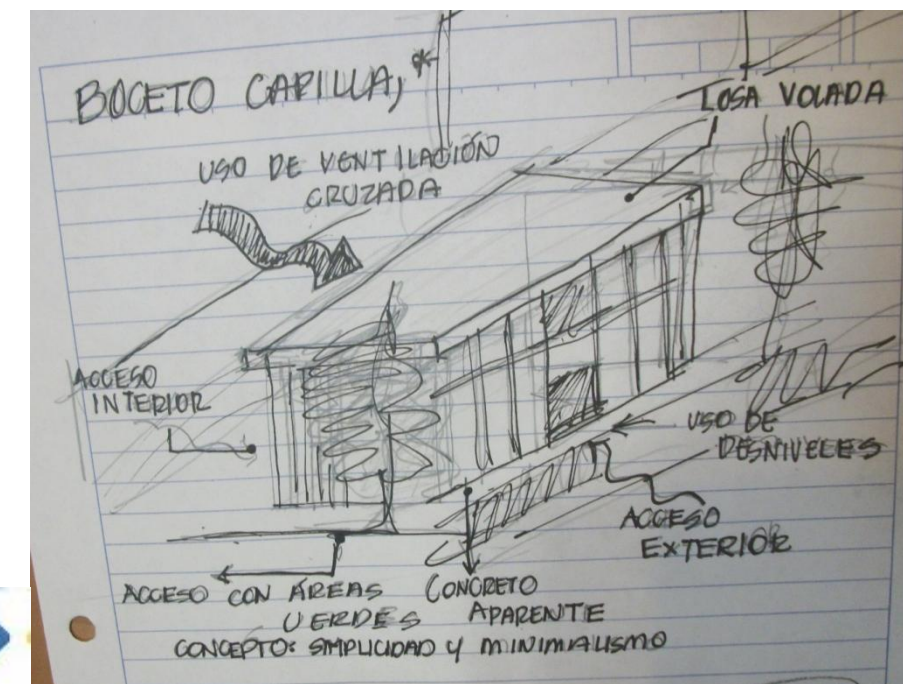 BOCETO CAPILLA,*
LOSA VOLADA
USO DE VENTILACIÓN
CRUZADA
ACCESO
INTERIOR
USO DE
DESNIVELES
ACCESO
EXTERIOR
ACCESO CON ÁREAS
VERDES
CONCRETO
APARENTE
CONCEPTO: SIMPLICIDAD Y MINIMALISMO